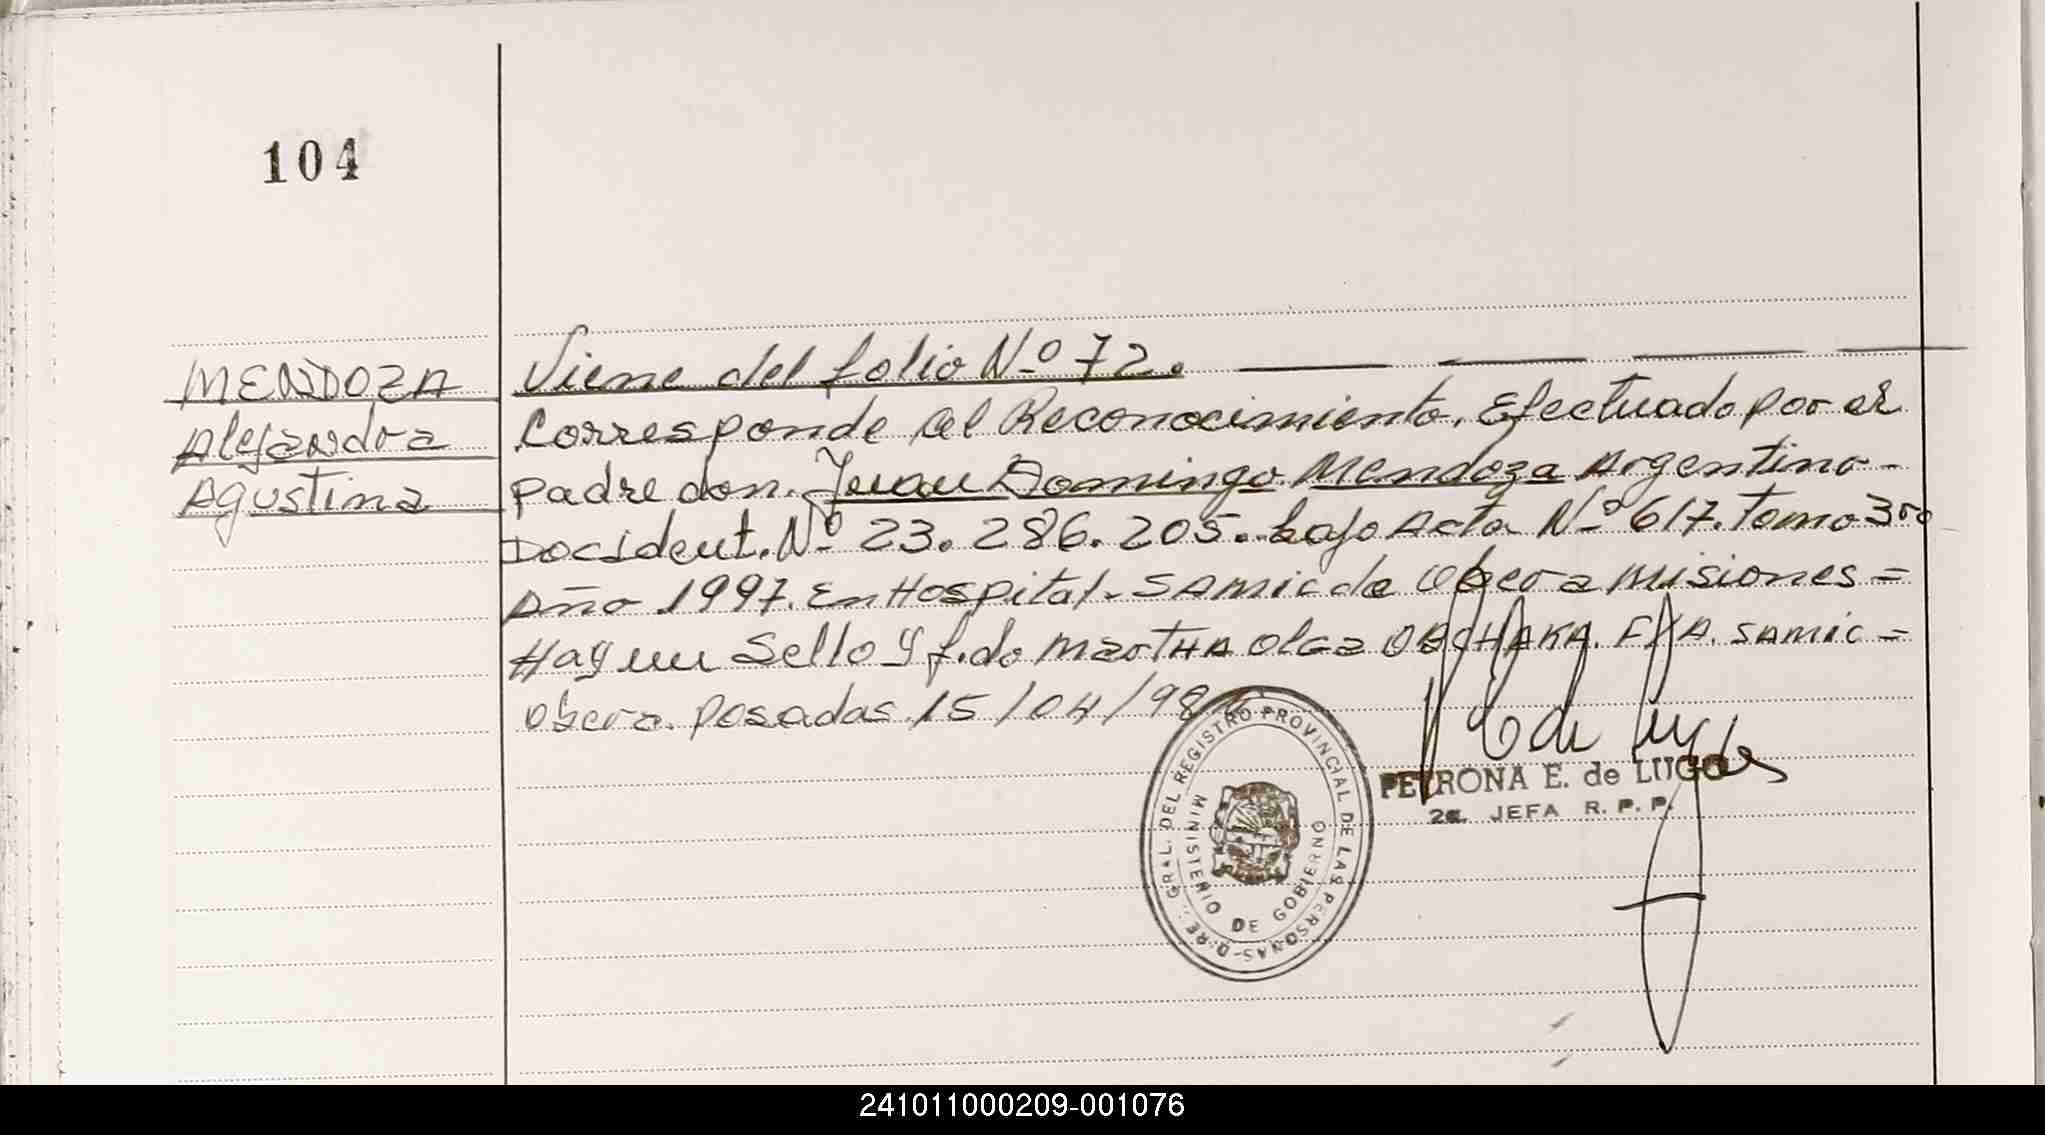 104
MENDOZA
Alejandra
Agustina
Viene del folio Nº 72.
Corresponde al Reconocimiento. Efectuado por el
padre don. Juan Domingo Mendoza Argentino-
Docident. Nº 23.286.205. bajo Acta Nº 617. Tomo 3ro
Año 1997. En Hospital. SAMic de Obera Misiones =
Hay un Sello y f.do MartHA Olga OBCHAKA. SAMIC =
Obera. Posadas 15/04/98
PETRONA E. de LUGO
2a. JEFA R. P. P.
DIRE. GRAL. DEL REGISTRO PROVINCIAL DE LAS PERSONAS-
MINISTERIO DE GOBIERNO
241011000209-001076